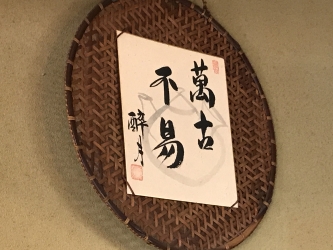 萬古
不易
酔月